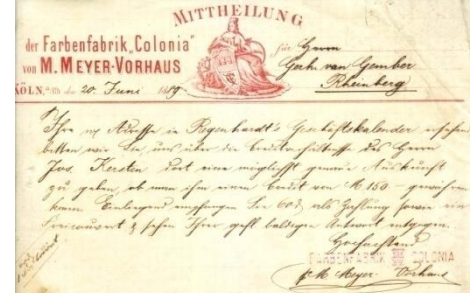 MITTHEILUNG
der Farbenfabrik „Colonia"
von M. MEYER-VORHAUS
für Herrn
Gerh. van Gember
Rheinberg
KÖLN, a/Rh den 20. Juni 1889
Ihre Adresse in Regenhardt's Geschäftskalender ersehend
bitten wir Sie, uns über die Creditverhältnisse des Herrn
Jos. Kersten dort eine möglichst genaue Auskunft
zu geben, ob man ihm einen Credit von M 150 – gewähren
kann. Einliegend empfangen Sie 60 als Zahlung sowie ein
Freicouvert & sehen Ihrer gefl baldigen Antwort entgegen.
Hochachtend
FARBENFABRIK COLONIA
M. Meyer-Vorhaus